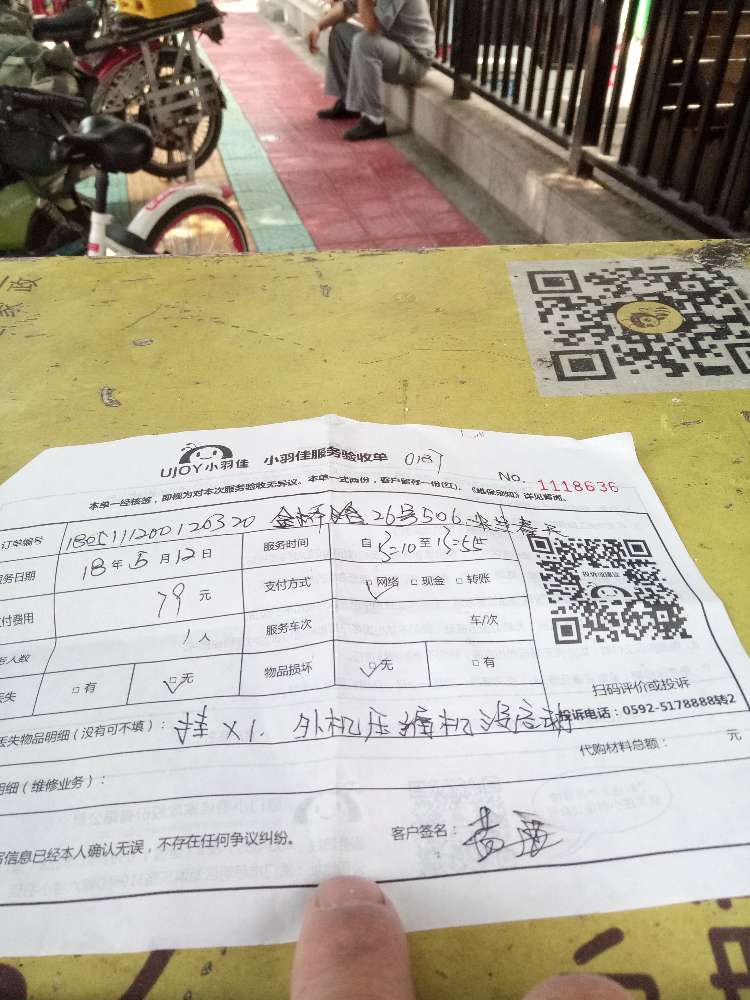 政
家
UJOY小羽佳 小羽佳服务验收单 0187
No. 1118636
本单一经核签，即视为对本次服务验收无异议。本单一式两份，客户留存一份(红)。《维保须知》详见背面。
订单编号 1805111200120320 26号506
务日期 18年5月12日 服务时间 自13=10至13=55
付费用 79元 支付方式 □网络 □现金 □转账
人数 1人 服务车次 车/次
丢失 □有 □无 物品损坏 □无 □有
投诉或建议
扫码评价或投诉
投诉电话：0592-5178888转2
丢失物品明细（没有可不填）： 挂x1. 外机压缩机没启动
代购材料总额： 元
明细（维修业务）：
写信息已经本人确认无误，不存在任何争议纠纷。
客户签名：